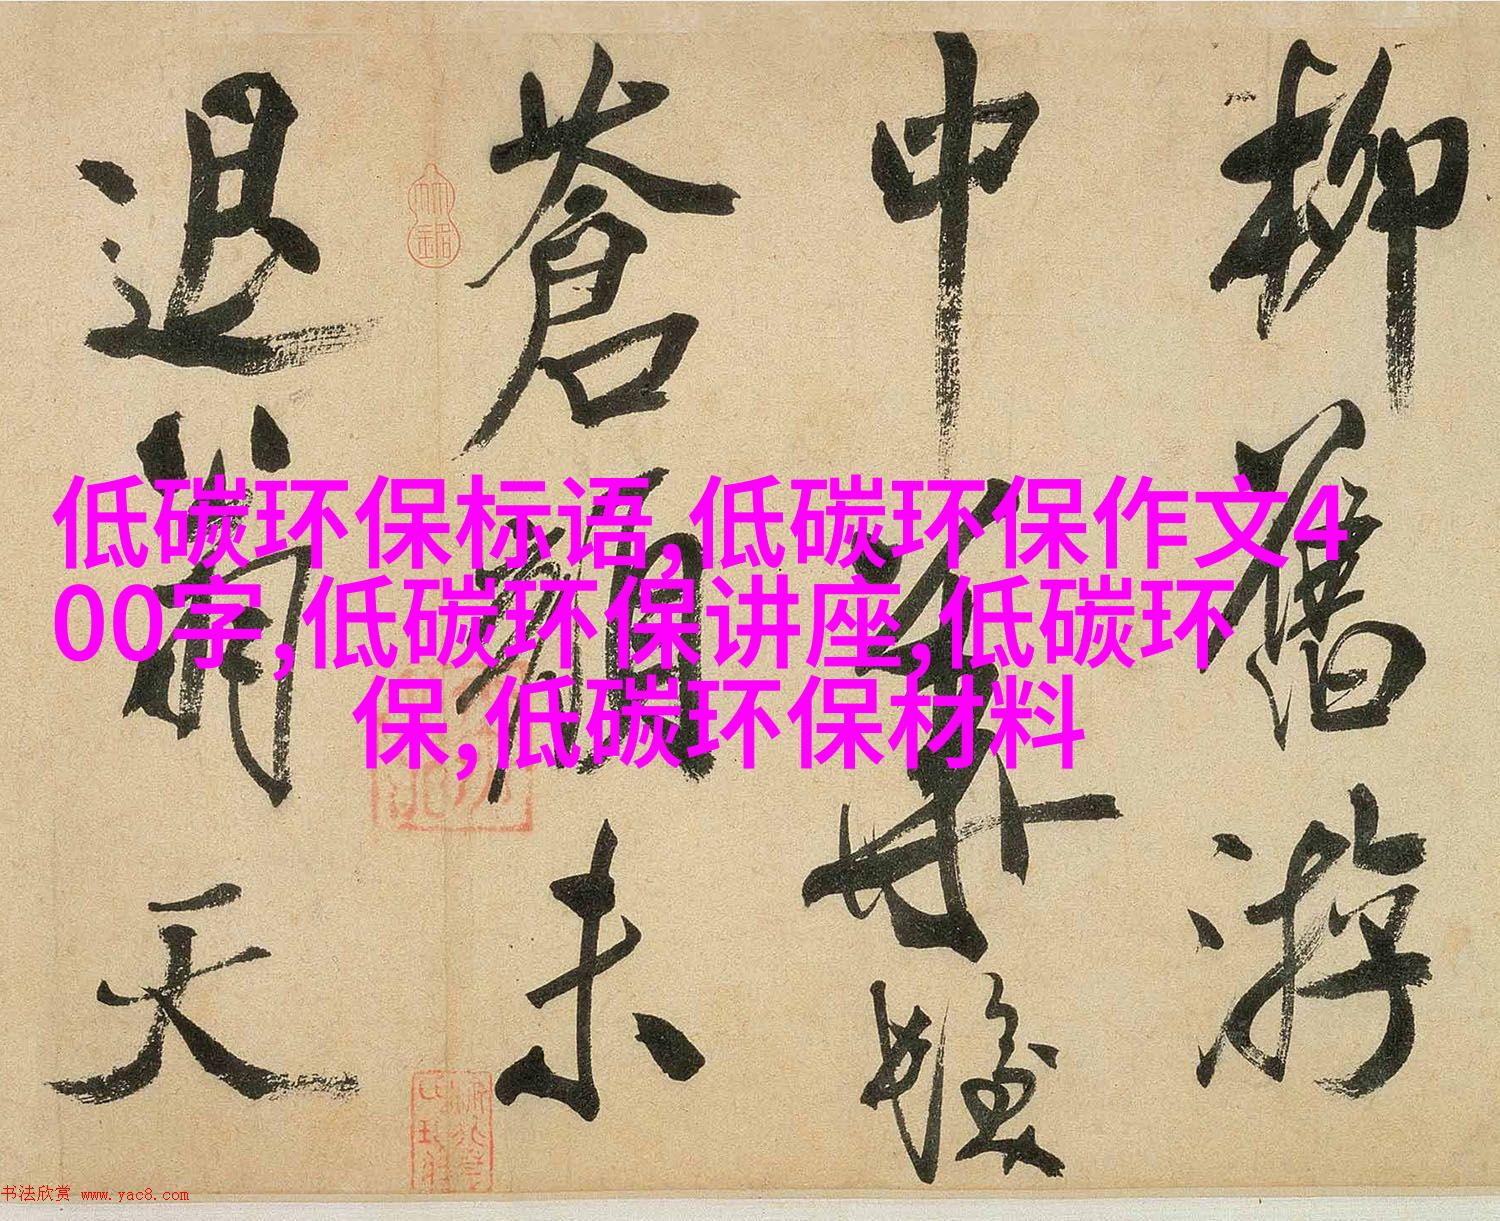 柳舊游
中華
蒼顏未
退天
低碳环保标语,低碳环保作文4
00字,低碳环保讲座,低碳环
保,低碳环保材料
书法欣赏 www.yac8.com